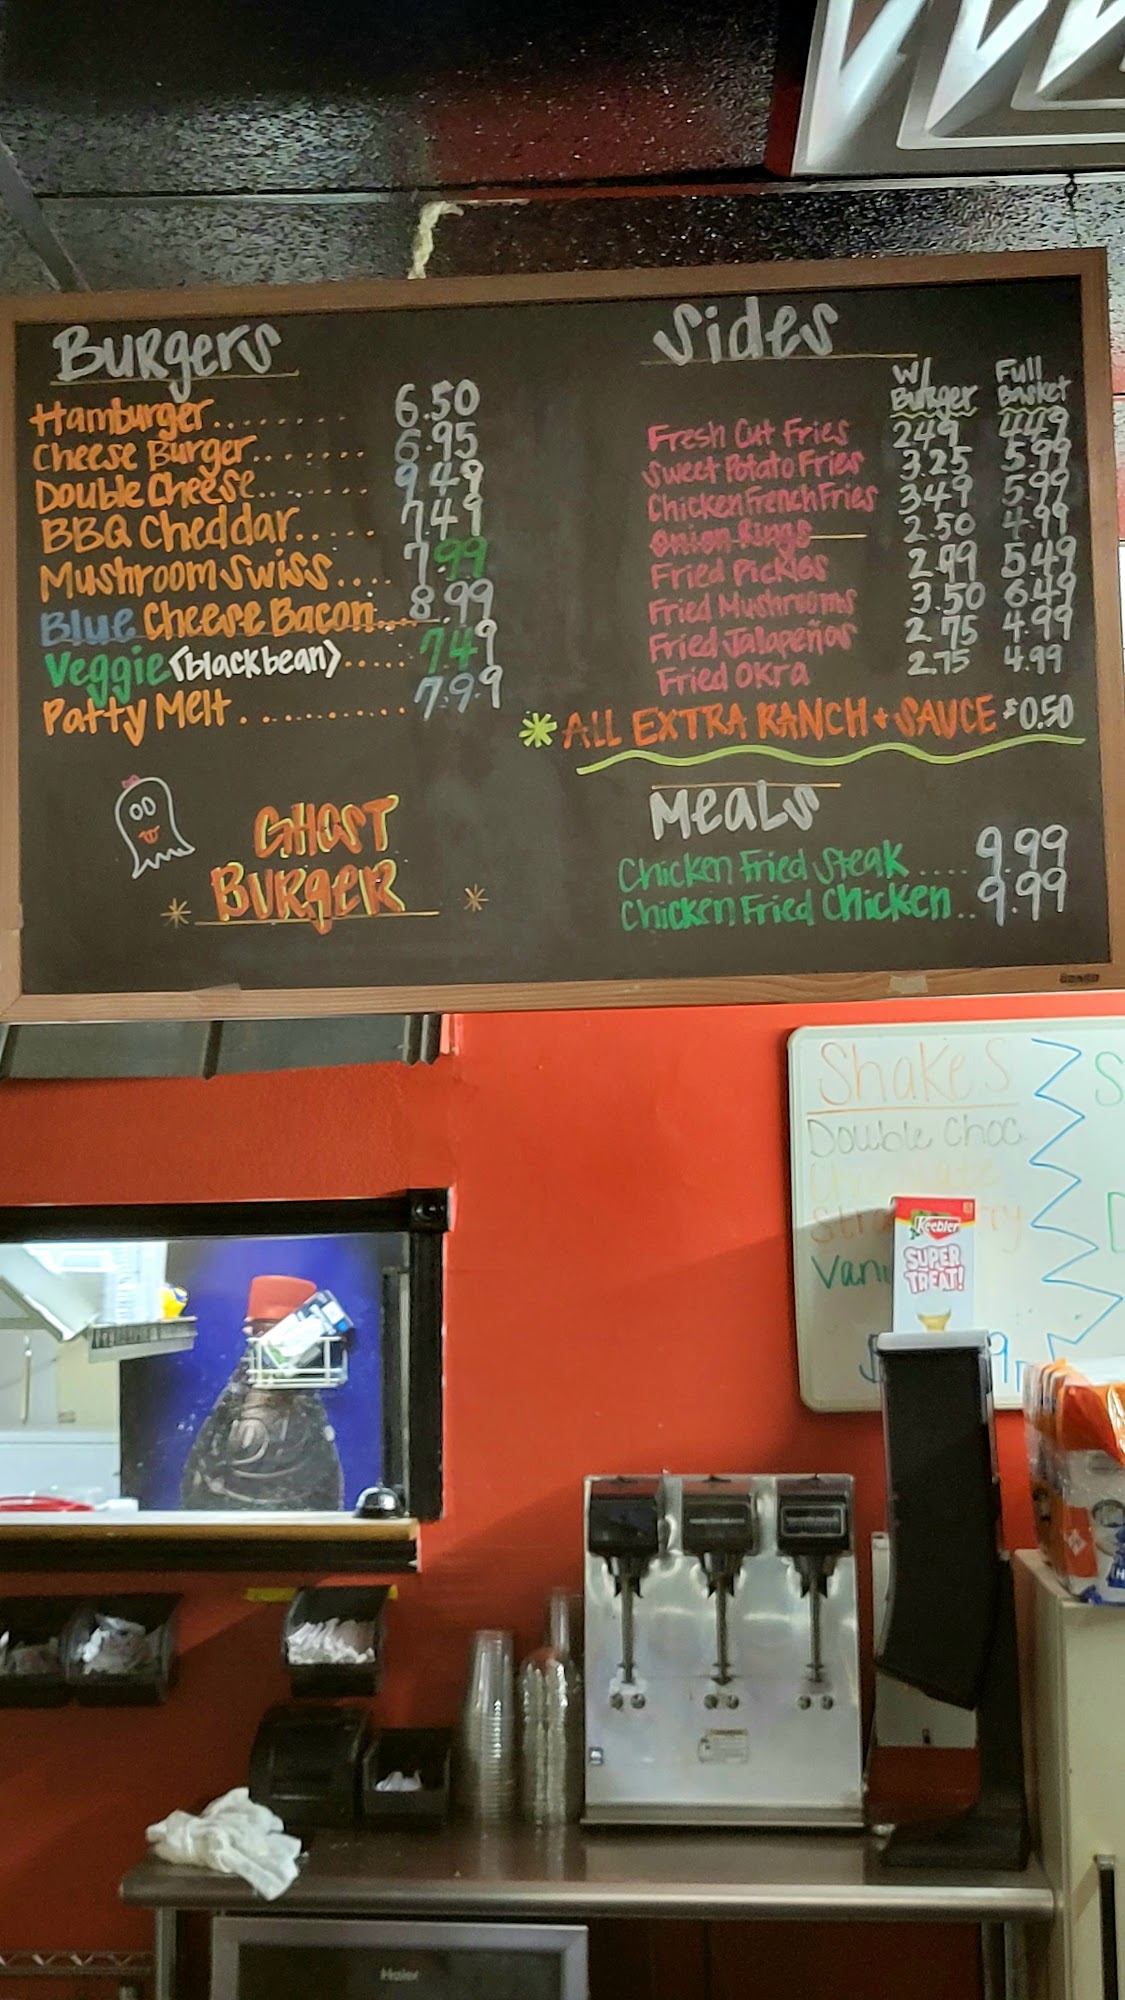 Burgers
Hamburger....... 6.50
Cheese Burger....... 6.95
Double Cheese....... 9.49
BBQ Cheddar..... 7.49
Mushroom Swiss.... 7.99
Blue Cheese Bacon... 8.99
Veggie (blackbean)..... 7.49
Patty Melt.......... 7.99
GHOST
BURGER
Sides
W/ Burger Full Basket
Fresh Cut Fries 2.49 4.49
Sweet Potato Fries 3.25 5.99
Chicken French Fries 3.49 5.99
Onion Rings 2.50 4.99
Fried Pickles 2.99 5.49
Fried Mushrooms 3.50 6.49
Fried Jalapeños 2.75 4.99
Fried OKra 2.75 4.99
* ALL EXTRA RANCH + SAUCE $0.50
Meals
Chicken Fried Steak .... 9.99
Chicken Fried Chicken.. 9.99
Shakes
Double Choc
Keebler
SUPER
TREAT!
Haier